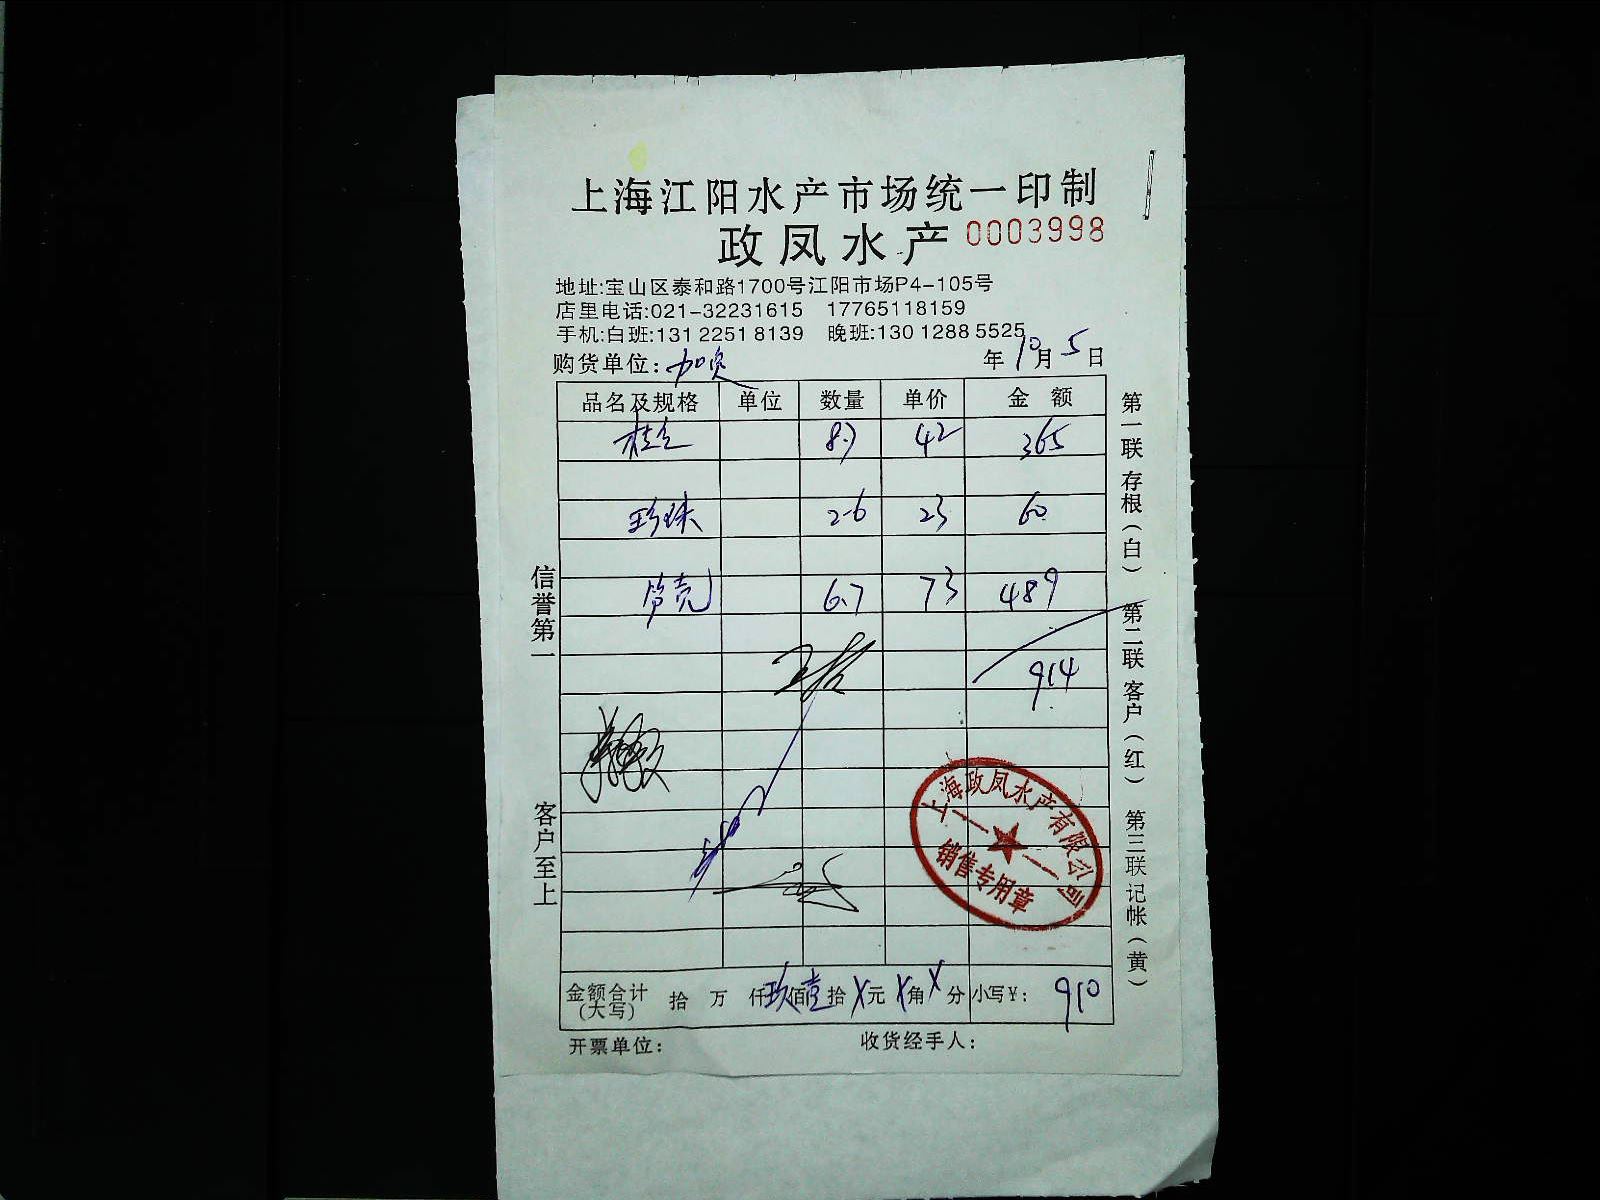 上海江阳水产市场统一印制
政凤水产 0003998
地址:宝山区泰和路1700号江阳市场P4-105号
店里电话:021-32231615 17765118159
手机:白班:131 2251 8139 晚班:130 1288 5525
购货单位: 年10月5日
品名及规格 单位 数量 单价 金额
桂鱼 8.7 42 365
珍珠 2.6 23 60
笋壳 6.7 73 489
914
金额合计(大写) 拾 万 仟玖佰壹拾X元X角X分 小写¥: 910
开票单位: 收货经手人:
信誉第一
客户至上
第一联存根(白) 第二联客户(红) 第三联记帐(黄)
上海政凤水产有限公司
销售专用章